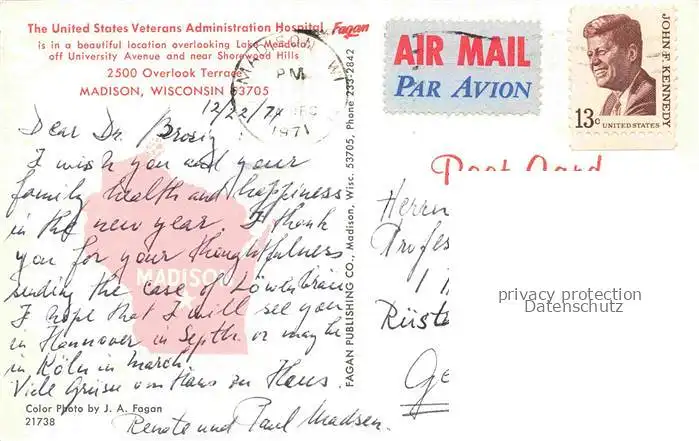 The United States Veterans Administration Hospital Fagan
is in a beautiful location overlooking Lake Mendota,
off University Avenue and near Shorewood Hills
2500 Overlook Terrace
MADISON, WISCONSIN 53705
MADISON, WI
PM
DEC
1971
AIR MAIL
PAR AVION
13c UNITED STATES
JOHN F. KENNEDY
Post Card
12/22/71
Dear Dr. Brosig
I wish you and your
family health and happiness
in the new year. I thank
you for your thoughtfulness
sending the case of Löwenbräu
I hope that I will see you
in Hannover in Septb. or maybe
in Köln in march.
Viele Grüsse von Haus zu Haus.
Renate und Paul Madsen.
MADISON
Color Photo by J. A. Fagan
21738
FAGAN PUBLISHING CO., Madison, Wisc. 53705, Phone 233-2842
Herrn
Profes
Rüste
Ge
privacy protection
Datenschutz